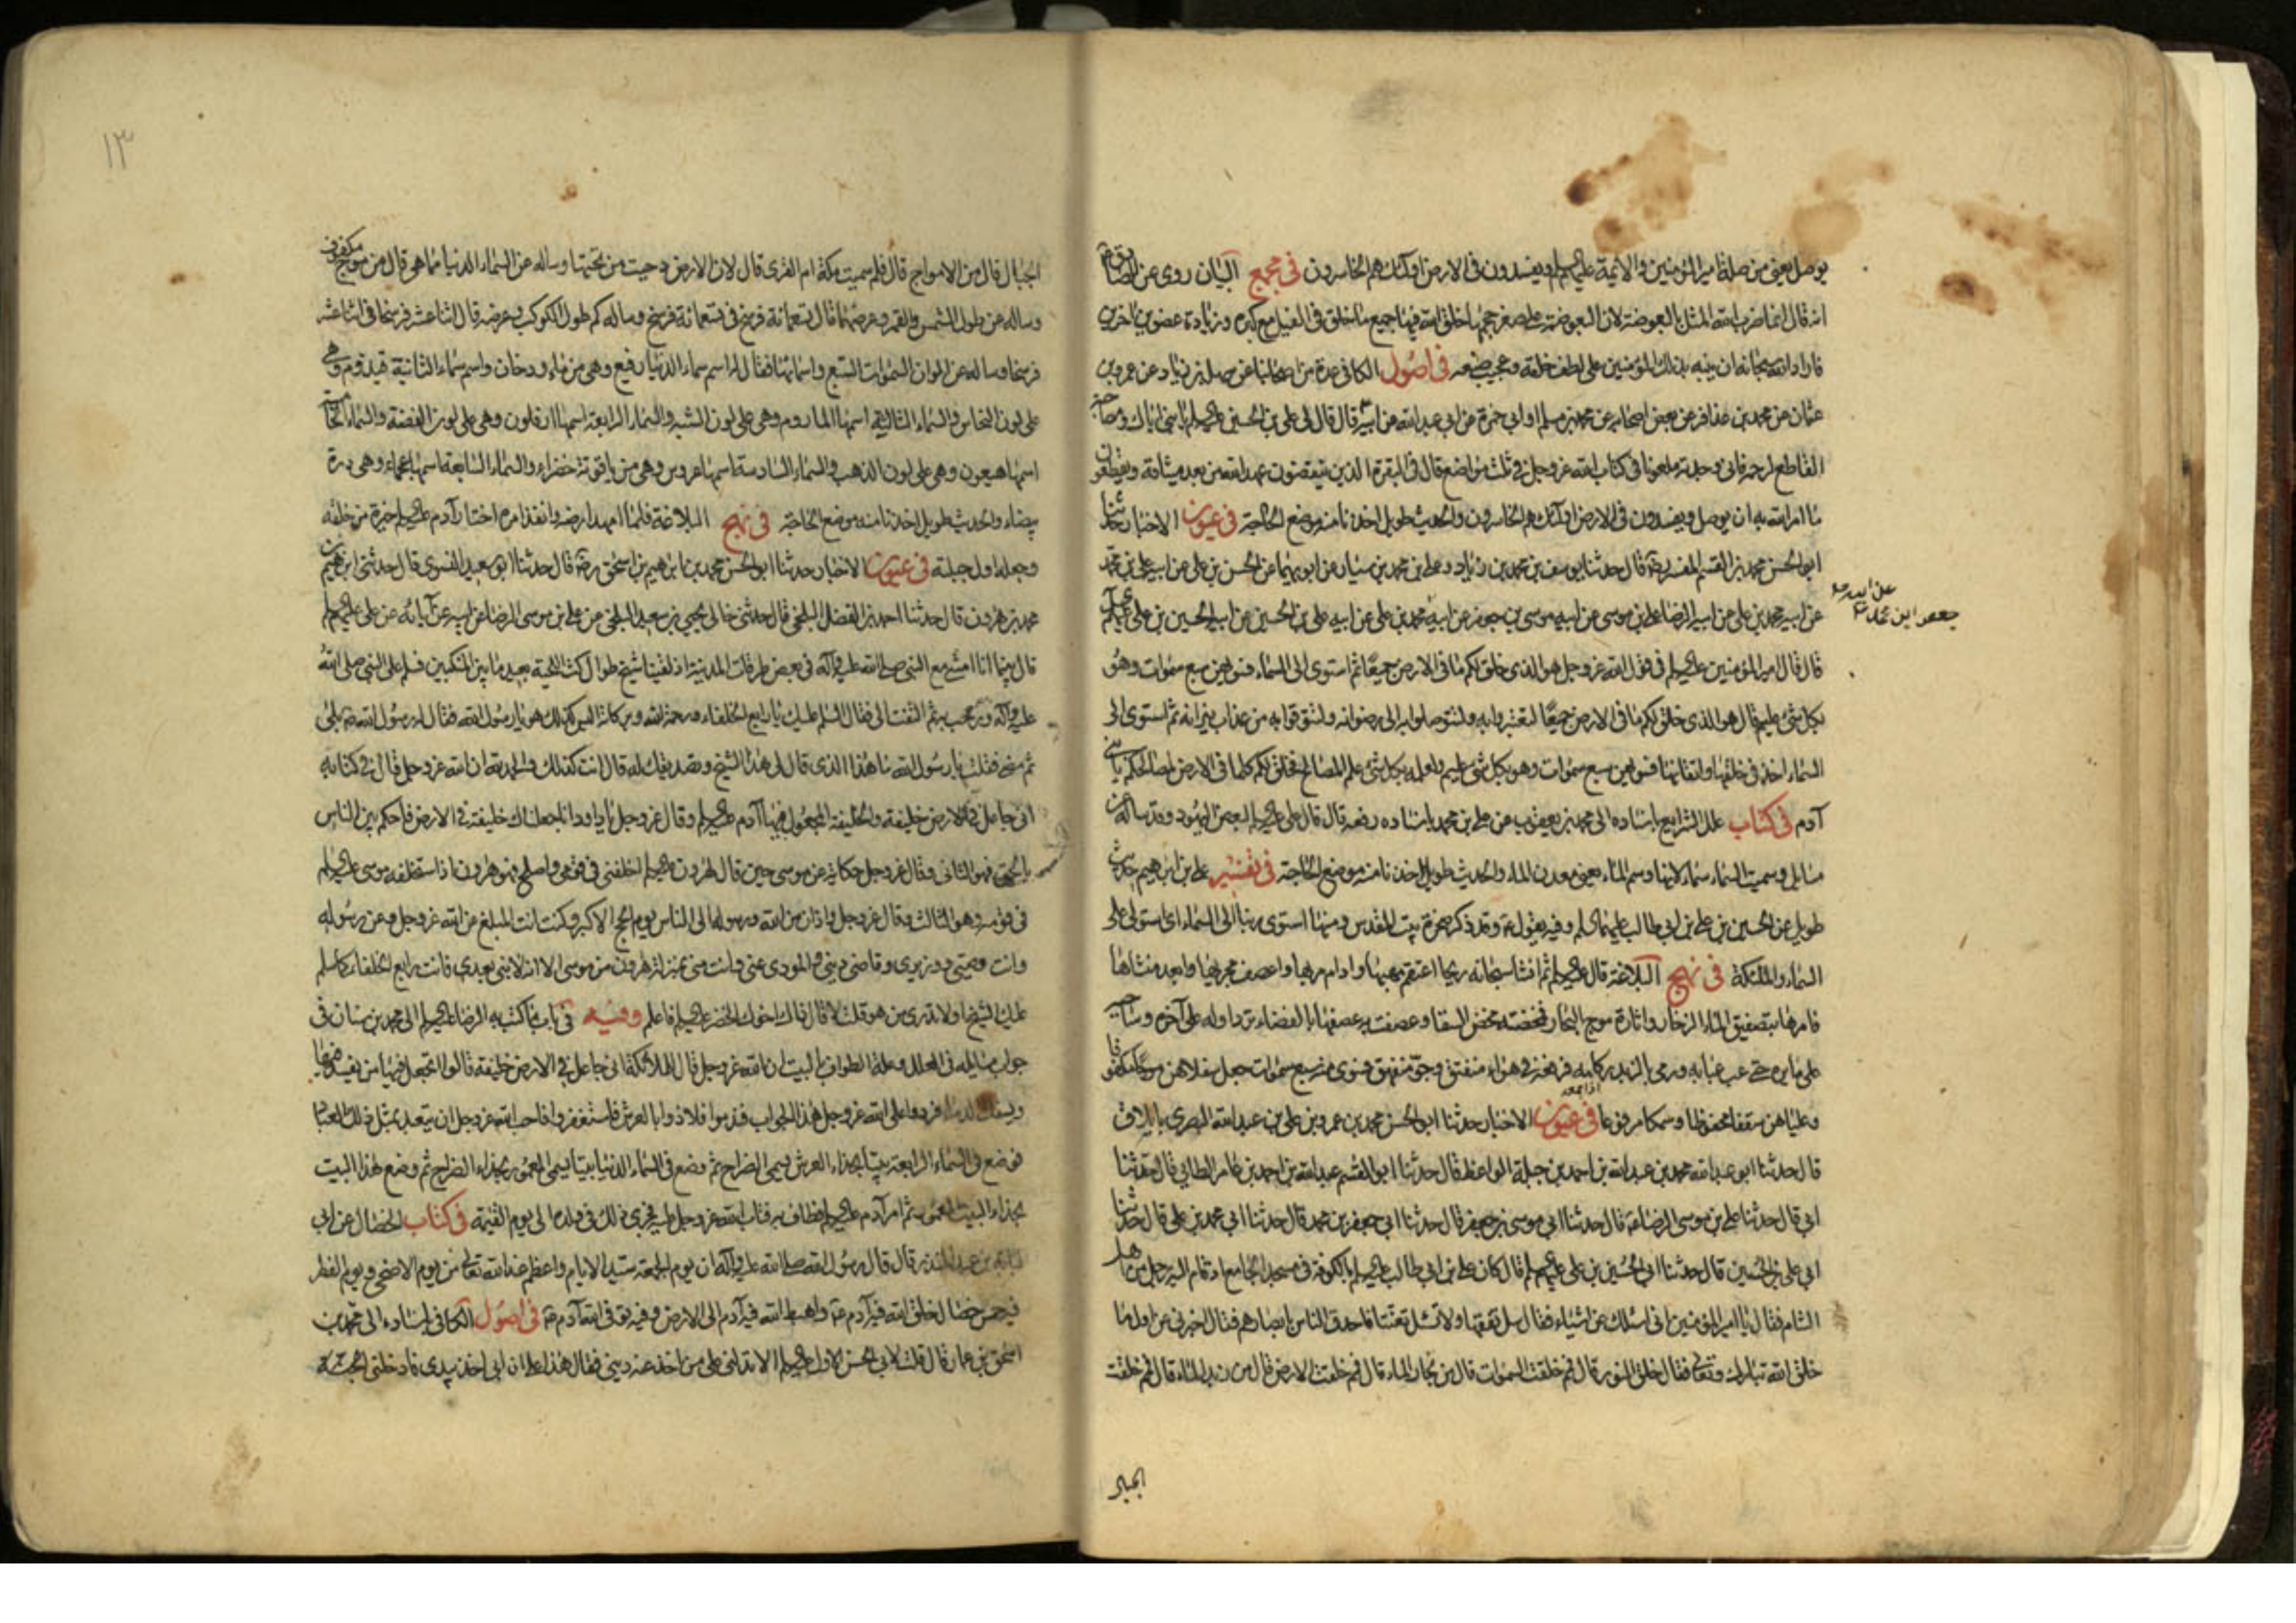 يوصل يعنى من صلة امير المؤمنين والائمة عليهم السلم ويفسدون فى الارض اولئك هم الخاسرون فى مجمع البيان روى عن الصادق
انه قال انما ضرب الله المثل بالبعوضة لان البعوضة على صغر حجمها خلق الله فيها جميع ما خلق فى الفيل مع كبره وزيادة عضوين آخرين
فاراد الله سبحانه ان ينبه بذلك المؤمنين على لطف خلقه وعجيب صنعه فى اصول الكافى عدة من اصحابنا عن سهل بن زياد عن عمرو بن
عثمان عن محمد بن عذافر عن بعض اصحابه عن محمد بن مسلم او ابى حمزة عن ابى عبد الله عن ابيه قال قال لى على بن الحسين عليه السلم يا بنى اياك ومصاحبة
القاطع لرحمه فانى وجدته ملعونا فى كتاب الله عز وجل فى ثلث مواضع قال فى البقرة الذين ينقضون عهد الله من بعد ميثاقه ويقطعون
ما امر الله به ان يوصل ويفسدون فى الارض اولئك هم الخاسرون والحديث طويل اخذنا منه موضع الحاجة فى عيون الاخبار حدثنا
ابو الحسن محمد بن القسم المفسر قال حدثنا يوسف بن محمد بن زياد وعلى بن محمد بن سيار عن ابويهما عن الحسن بن على عن ابيه على بن محمد
عن ابيه محمد بن على عن ابيه الرضا على بن موسى عن ابيه موسى بن جعفر عن ابيه محمد بن على عن ابيه على بن الحسين عن ابيه الحسين بن على عليهم السلم
عن ابيه
جعفر ابن محمد
قال قال امير المؤمنين عليه السلم فى قول الله عز وجل هو الذى خلق لكم ما فى الارض جميعا ثم استوى الى السماء فسويهن سبع سموات وهو
بكل شئ عليم قال هو الذى خلق لكم ما فى الارض جميعا لتعتبروا به ولتتوصلوا به الى رضوانه ولتتوقوا به من عذاب نيرانه ثم استوى الى
السماء اخذ فى خلقها واتقانها فسويهن سبع سموات وهو بكل شئ عليم ولعلمه بكل شئ علم المصالح فخلق لكم كلما فى الارض لمصالحكم يا بنى
آدم فى كتاب علل الشرايع باسناده الى محمد بن يعقوب عن على بن محمد باسناده رفعه قال قال على عليه السلم لبعض اليهود وقد ساله عن
مسايل وسميت السماء سماء لانها وسم الماء يعنى معدن الماء والحديث طويل اخذنا منه موضع الحاجة فى تفسير على بن ابرهيم حديث
طويل عن الحسين بن على بن ابى طالب عليهما السلم وفيه يقول وقد ذكر صخرة بيت المقدس ومنها استوى ربنا الى السماء اى استولى على
السماء والملئكة فى نهج البلاغة قال عليه السلم ثم انشا سبحانه ريحا اعتقم مهبها وادام مربها واعصف مجريها وابعد منشاها
فامرها بتصفيق الماء الزخار واثارة موج البحار فمخضته مخض السقا وعصفت به عصفها بالفضاء ترد اوله على آخره وساجيه
على مايره حتى عب عبابه ورمى بالزبد ركامه فرفعه فى هواء منفتق وجو منفهق فسوى منه سبع سموات جعل سفلاهن موجا مكفوفا
وعلياهن سقفا محفوظا وسمكا مرفوعا فى عيون الاخبار حدثنا ابو الحسن محمد بن عمرو بن على بن عبد الله البصرى بايلاق
قال حدثنا ابو عبد الله محمد بن عبد الله بن احمد بن جبلة الواعظ قال حدثنا ابو القسم عبد الله بن احمد بن عامر الطائى قال حدثنا
ابى قال حدثنا على بن موسى الرضا قال حدثنا ابى موسى بن جعفر قال حدثنا ابى جعفر بن محمد قال حدثنا ابى محمد بن على قال حدثنا
ابى على بن الحسين قال حدثنا ابى الحسين بن على عليهم السلم قال كان على بن ابى طالب عليه السلم بالكوفة فى مسجد الجامع اذ قام اليه رجل من اهل
الشام فقال يا امير المؤمنين انى اسئلك عن اشياء فقال سل تفقها ولا تسئل تعنتا فاحدق الناس بابصارهم فقال اخبرنى عن اول ما
خلق الله تبارك وتعالى فقال خلق النور قال فمم خلقت السموات قال من بخار الماء قال فمم خلقت الارض قال من زبد الماء قال فمم خلقت
الجبال
١٣
الجبال قال من الامواج قال فلم سميت مكة ام القرى قال لان الارض دحيت من تحتها وساله عن السماء الدنيا مما هى قال من موج مكفوف
وساله عن طول الشمس والقمر وعرضهما قال تسعمائة فرسخ فى تسعمائة فرسخ وساله كم طول الكوكب وعرضه قال اثنا عشر فرسخا فى اثنا عشر
فرسخا وساله عن الوان السموات السبع واسمائها فقال له اسم سماء الدنيا رفيع وهى من ماء ودخان واسم سماء الثانية قيدوم وهى
على لون النحاس والسماء الثالثة اسمها الماروم وهى على لون الشبه والسماء الرابعة اسمها ارفلون وهى على لون الفضة والسماء الخامسة
اسمها هيعون وهى على لون الذهب والسماء السادسة اسمها عروس وهى من ياقوتة خضراء والسماء السابعة اسمها عجماء وهى درة
بيضاء والحديث طويل اخذنا منه موضع الحاجة فى نهج البلاغة فلما امهد ارضه وانفذ امره اختار آدم عليه السلم خيرة من خلقه
وجعله اول جبلته فى عيون الاخبار حدثنا ابو الحسن محمد بن ابرهيم بن اسحق قال حدثنا ابو سعيد النسوى قال حدثنى ابرهيم بن
محمد بن هرون قال حدثنا احمد بن الفضل البلخى قال حدثنى خالى يحيى بن سعيد البلخى عن على بن موسى الرضا عن ابيه عن آبائه عن على عليهم السلم
قال بينما انا امشى مع النبى صلى الله عليه وآله فى بعض طرقات المدينة اذ لقينا شيخ طوال كث اللحية بعيد ما بين المنكبين فسلم على النبى صلى الله
عليه وآله ورحب به ثم التفت الى فقال السلم عليك يا رابع الخلفاء ورحمة الله وبركاته اليس كذلك هو يا رسول الله فقال له رسول الله بلى
ثم مضى فقلت يا رسول الله ما هذا الذى قال لى هذا الشيخ وتصديقك له قال انت كذلك والحمد لله ان الله عز وجل قال فى كتابه
انى جاعل فى الارض خليفة والخليفة المجعول فيها آدم عليه السلم وقال عز وجل يا داود انا جعلناك خليفة فى الارض فاحكم بين الناس
بالحق فهو الثانى وقال عز وجل حكاية عن موسى حين قال لهرون عليه السلم اخلفنى فى قومى واصلح فهو هرون اذا استخلفه موسى عليه السلم
فى قومه وهو الثالث وقال عز وجل واذان من الله ورسوله الى الناس يوم الحج الاكبر وكنت انت المبلغ عن الله عز وجل وعن رسوله
وانت وصيى ووزيرى وقاضى دينى والمودى عنى وانت منى بمنزلة هرون من موسى الا انه لا نبى بعدى فانت رابع الخلفاء كما سلم
عليك الشيخ او لا تدرى من هو قلت لا قال ذاك اخوك الخضر عليه السلم فاعلم وفيه فى باب ما كتب به الرضا عليه السلم الى محمد بن سنان فى
جواب مسايله فى العلل وعلة الطواف بالبيت ان الله عز وجل قال للملائكة انى جاعل فى الارض خليفة قالوا اتجعل فيها من يفسد فيها
ويسفك الدماء فردوا على الله عز وجل هذا الجواب فندموا فلاذوا بالعرش فاستغفروا فاحب الله عز وجل ان يتعبد بمثل ذلك العباد
فوضع فى السماء الرابعة بيتا بحذاء العرش يسمى الضراح ثم وضع فى السماء الدنيا بيتا يسمى المعمور بحذاء الضراح ثم وضع هذا البيت
بحذاء البيت المعمور ثم امر آدم عليه السلم فطاف به فتاب الله عز وجل عليه فجرى ذلك فى ولده الى يوم القيمة فى كتاب الخصال عن ابى
لبابة بن عبد المنذر قال قال رسول الله صلى الله عليه وآله ان يوم الجمعة سيد الايام واعظم عند الله تعالى من يوم الاضحى ويوم الفطر
فيه خمس خصال خلق الله فيه آدم واهبط الله فيه آدم الى الارض وفيه توفى الله آدم فى اصول الكافى باسناده الى محمد بن
اسحق بن عمار قال قلت لابى الحسن الاول عليه السلم الا تدلنى على من اخذ عنه دينى فقال هذا على ان ابى اخذ بيدى فادخلنى